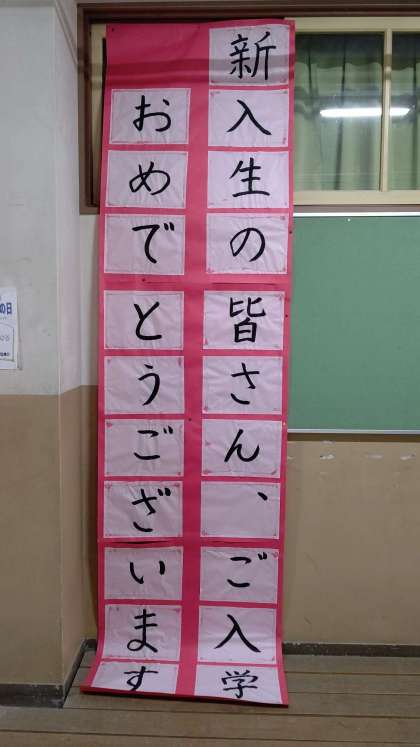 新入生の皆さん、ご入学
おめでとうございます
の日